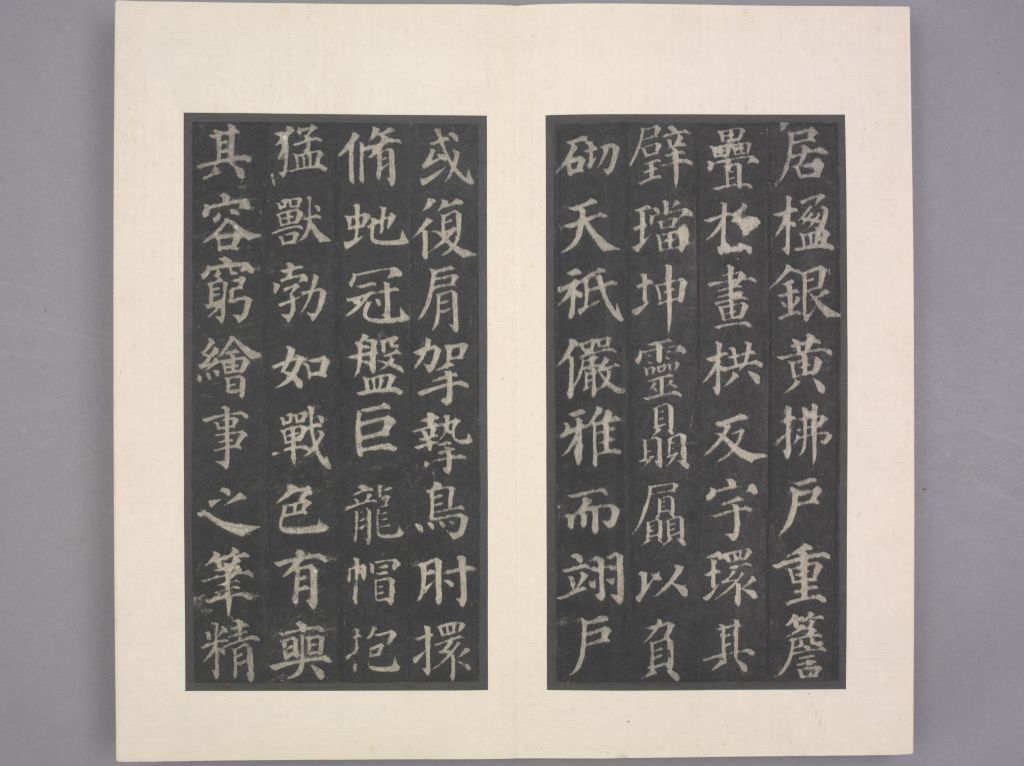 居楹銀黄拂户重簷
疊於畫栱反宇環其
璧璫坤靈贔屭以負
砌天祇儼雅而翊户
或復肩挐摯鳥肘擐
脩虵冠盤巨龍帽抱
猛獸勃如戰色有奭
其容窮繪事之筆精